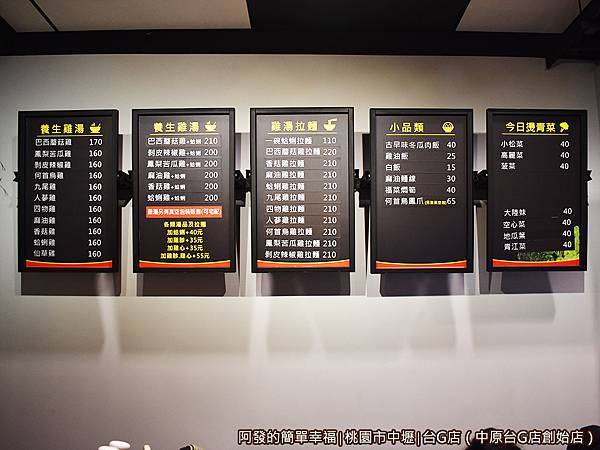 養生雞湯
巴西蘑菇雞 170
鳳梨苦瓜雞 160
剝皮辣椒雞 160
何首烏雞 160
九尾雞 160
人蔘雞 160
四物雞 160
麻油雞 160
香菇雞 160
蛤蜊雞 160
仙草雞 160
養生雞湯
巴西蘑菇雞+蛤蜊 210
剝皮辣椒雞+蛤蜊 200
鳳梨苦瓜雞+蛤蜊 200
麻油雞+蛤蜊 200
香菇雞+蛤蜊 200
蛤蜊雞+蛤蜊 200
雞湯另有真空包裝販售(可宅配)
各類湯品及拉麵
加蛤蜊+40元
加雞胗+35元
加雞心+35元
加雞胗.雞心+55元
雞湯拉麵
一碗蛤蜊拉麵 110
巴西蘑菇雞拉麵 220
香菇雞拉麵 210
麻油雞拉麵 210
蛤蜊雞拉麵 210
九尾雞拉麵 210
四物雞拉麵 210
人蔘雞拉麵 210
何首烏雞拉麵 210
鳳梨苦瓜雞拉麵 210
剝皮辣椒雞拉麵 210
小品類
古早味冬瓜肉飯 40
雞油飯 25
白飯 15
麻油麵線 40
福菜燜筍 40
何首烏鳳爪 65
今日燙青菜
小松菜 40
高麗菜 40
菠菜 40
大陸妹 40
空心菜 40
地瓜葉 40
青江菜 40
阿發的簡單幸福|桃園市中壢|台G店（中原台G店創始店）